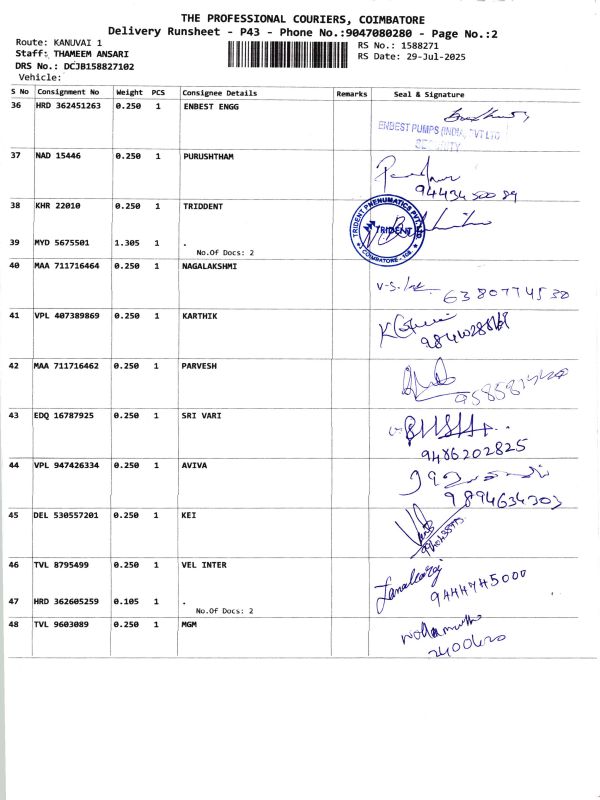 THE PROFESSIONAL COURIERS, COIMBATORE
Delivery Runsheet - P43 - Phone No.:9047080280 - Page No.:2
Route: KANUVAI 1
Staff: THAMEEM ANSARI
DRS No.: DCJB158827102
Vehicle:
RS No.: 1588271
RS Date: 29-Jul-2025
S No Consignment No Weight PCS Consignee Details Remarks Seal & Signature
36 HRD 362451263 0.250 1 ENBEST ENGG
ENBEST PUMPS (INDIA) PVT LTD
SECURITY
37 NAD 15446 0.250 1 PURUSHTHAM
38 KHR 22010 0.250 1 TRIDDENT
TRIDENT PNEUMATICS PVT. LTD
TRIDENT
COIMBATORE
39 MYD 5675501 1.305 1 .
No.Of Docs: 2
40 MAA 711716464 0.250 1 NAGALAKSHMI
6380774530
41 VPL 407389869 0.250 1 KARTHIK
42 MAA 711716462 0.250 1 PARVESH
43 EDQ 16787925 0.250 1 SRI VARI
9486202825
44 VPL 947426334 0.250 1 AVIVA
9894634303
45 DEL 530557201 0.250 1 KEI
46 TVL 8795499 0.250 1 VEL INTER
9444745000
47 HRD 362605259 0.105 1 .
No.Of Docs: 2
48 TVL 9603089 0.250 1 MGM
2400420